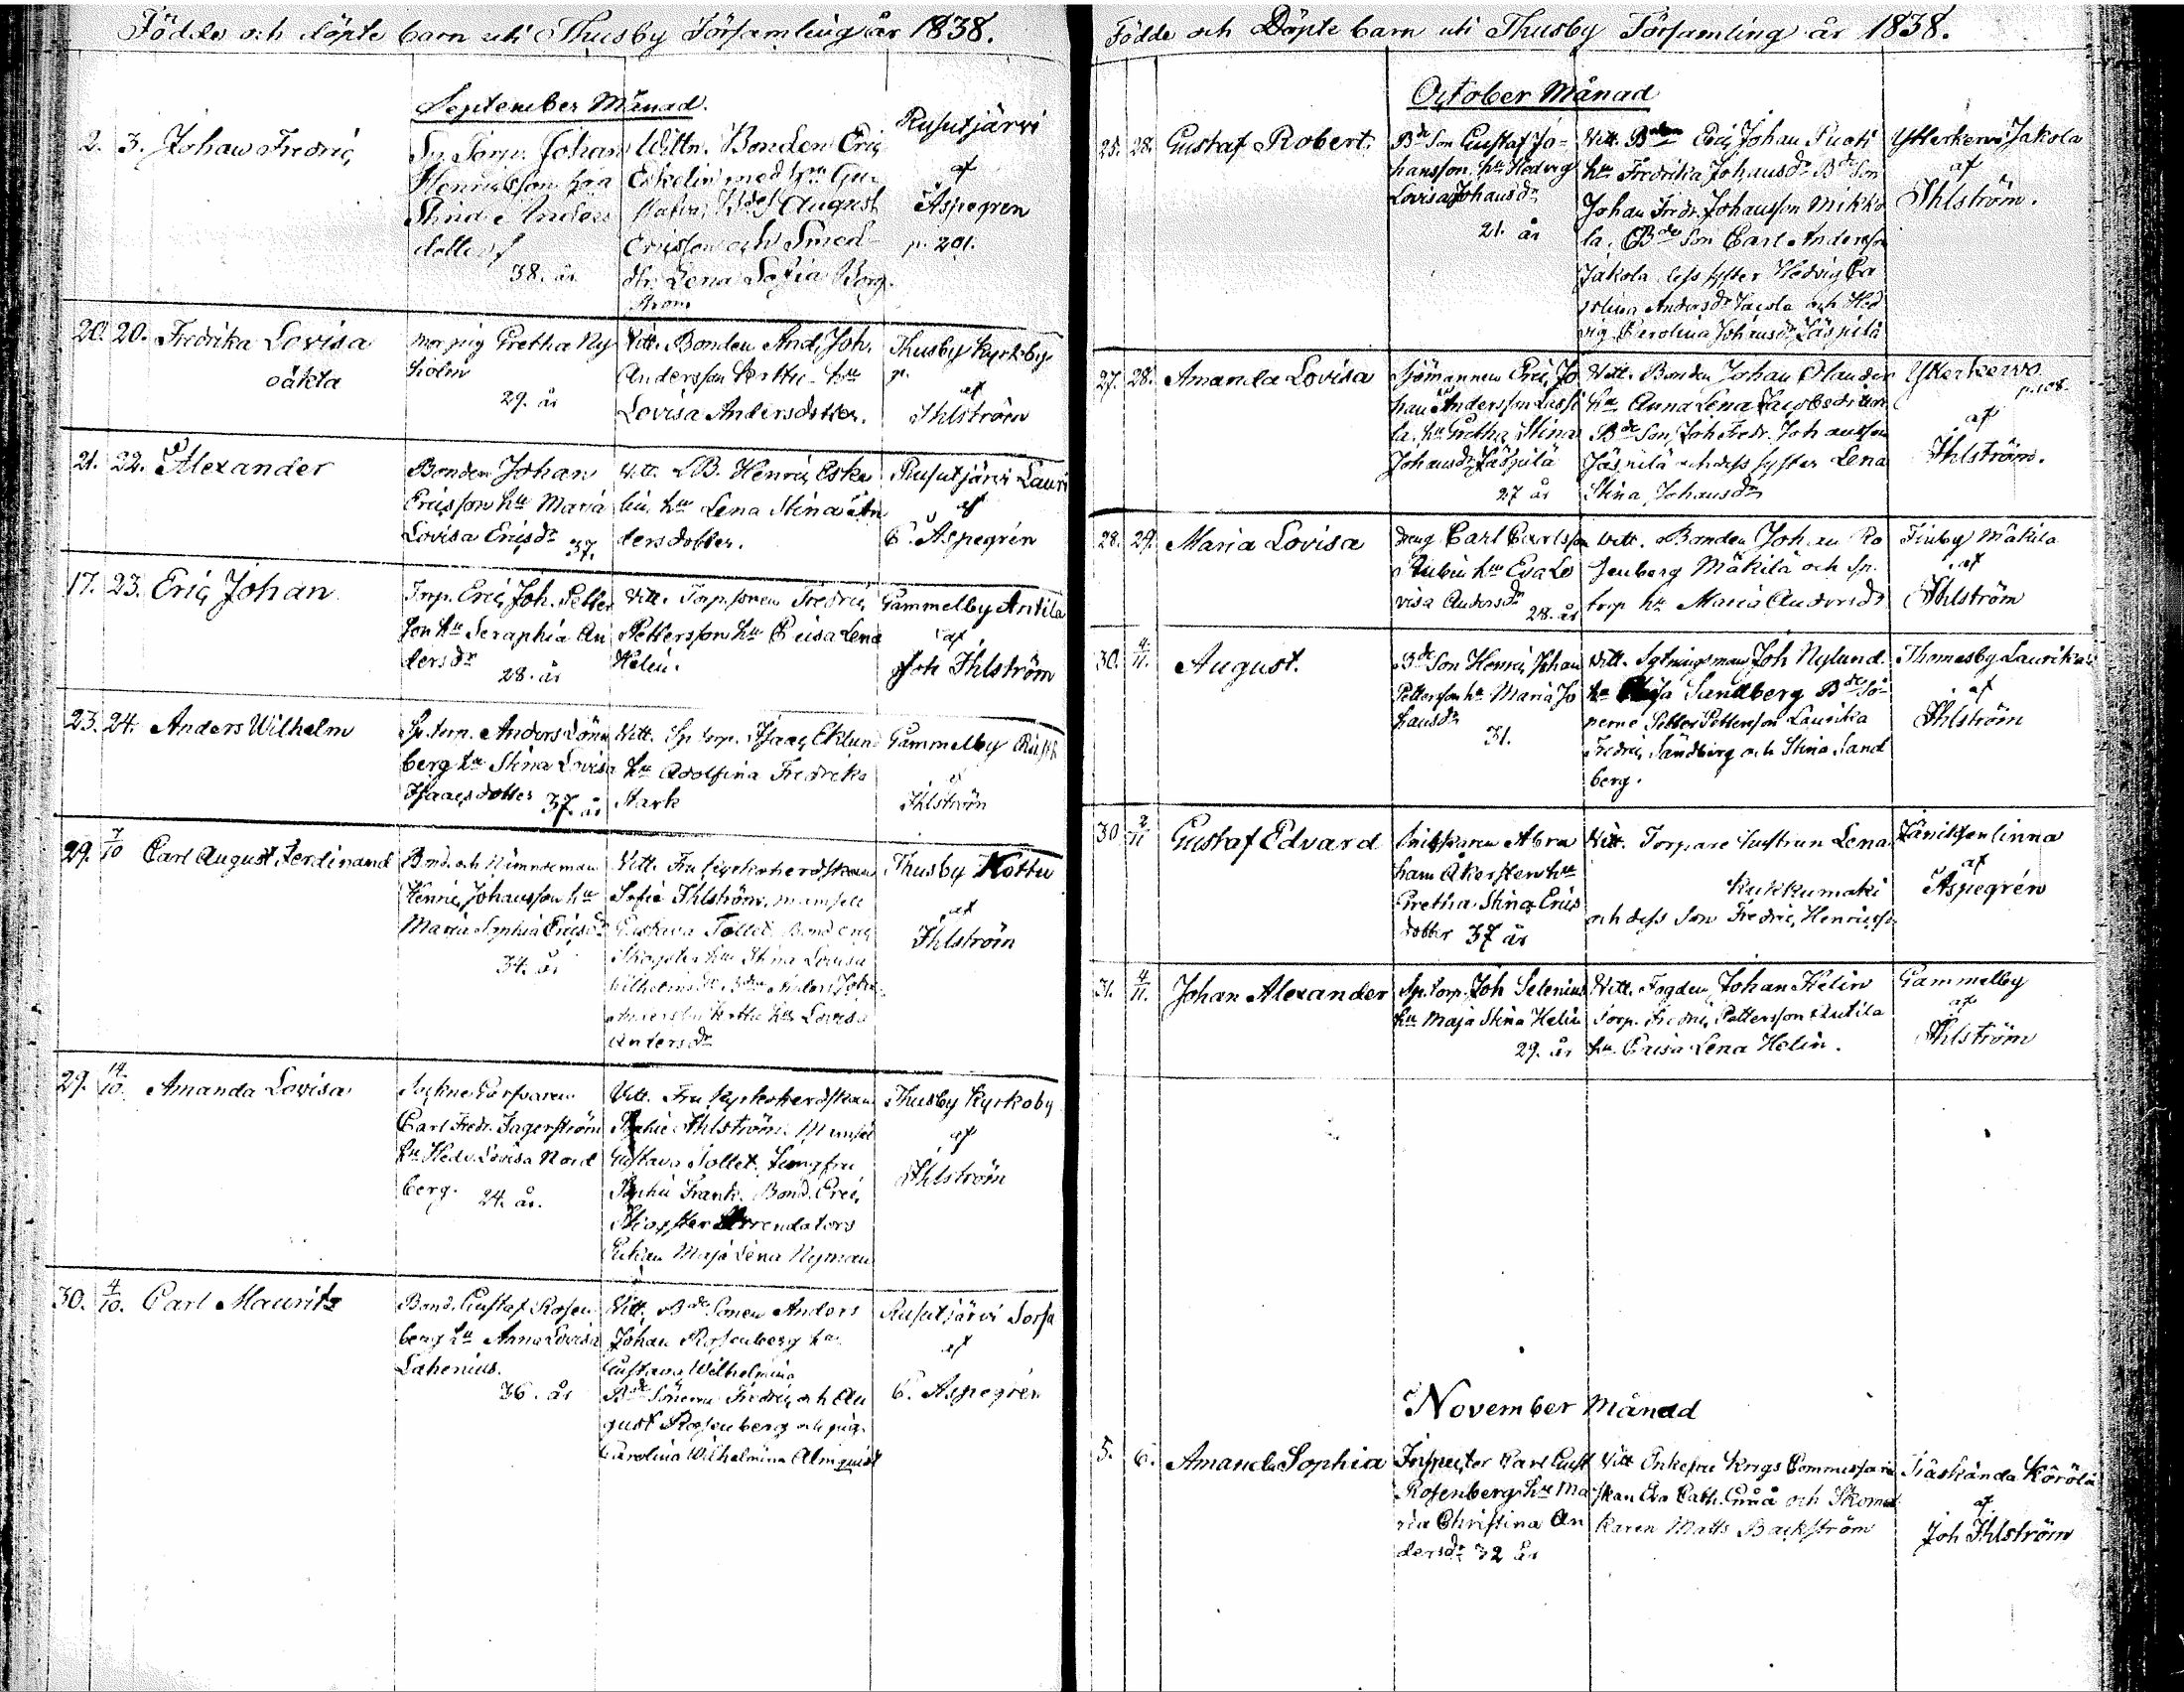 Födde och döpte barn uti Thusby Församling år 1838.
September Månad.
2. 3. Johan Fredric
Sp. Torp. Johan
Henricsson hra
Stina Anders
dotter
38. år
Wittn. Bonden Eric
Eskelin med hru Gu
stafva, Bdes August
Ericsson och Smed
dtr. Lena Sofia Borg
ström
Rusutjärvi
af
Aspegren
p. 201.
20. 20. Fredrika Lovisa
oäkta
Gretha Ny
holm
29. år
Vitt. Bonden And. Joh.
Andersson Kerttu hru
Lovisa Andersdotter.
Thusby Kyrkoby
p.
af
Ihlström
21. 22. Alexander
Bonden Johan
Ericsson hru Maria
Lovisa Ericsdr 37.
Vitt. B. Henric Eske
lin hru Lena Stina An
dersdotter.
Rusutjärvi Lauri
af
C. Aspegrén
17. 23. Eric Johan
Torp. Eric Joh. Petter
son hru Seraphia An
dersdr
28. år
Vitt. Torp. sonen Fredric
Pettersson hru Caisa Lena
Helin.
Gammelby Antila
af
Joh Ihlström
23. 24. Anders Wilhelm
Sp. torp. Anders Lönn
berg hru Stina Lovisa
Isaacsdotter 37. år
Vitt. Sp. torp. Isaac Eklund
hru Adolfina Fredrika
Stark
Gammelby
af
Ihlström
29. 7/10 Carl August Ferdinand
Bond. och Nämndeman
Henric Johansson hru
Maria Sophia Ericsdr
34. år
Vitt. Fru Kyrkoherdskan
Sofie Ihlström, mamsell
Gustava Tollet, Bond. Eric
Skogster hru Stina Lovisa
Wilhelmsdr Anders Joh.
Andersson Kerttu hru Lovisa
Andersdr
Thusby Kottu
af
Ihlström
29. 14/10. Amanda Lovisa
Sockne Skräddaren
Carl Fredr. Fagerström
hru Hedv. Lovisa Nord
berg. 24. år.
Vitt. Fru Kyrkoherdskan
Sophie Ihlström. Mamsel
Gustava Tollet. Jungfru
Sophie Frank. Bond. Eric
Skogster Arrendators
Enkan Maja Lena Nyman
Thusby Kyrkoby
af
Ihlström
30. 4/10. Carl Mauritz
Bond. Gustaf Rosen
berg hru Anna Lovisa
Lahenius.
36. år
Vitt. Bde Sonen Anders
Johan Rosenberg hru
Gustava Wilhelmina
Bde Sönerne Fredric och Au
gust Rosenberg och pig.
Carolina Wilhelmina Almquist
Rusutjärvi Sorsa
af
C. Aspegrén
Födde och Döpte barn uti Thusby Församling år 1838.
October Månad
25. 28. Gustaf Robert.
Bde Son Gustaf Jo-
hansson. hru Hedvig
Lovisa Johansdr
21. år
Vitt. Bonden Eric Johan Puoti
hru Fredrika Johansdr Bde Son
Johan Fredr. Johansson Mikko
la. Bde Son Carl Andersson
Jakola, dess syster Hedvig Ca
rolina Andersdr Jacola och Hed
vig Carolina Johansdr Jäspilä
Ytterkervo Jakola
af
Ihlström.
27. 28. Amanda Lovisa
Sjömannen Eric Jo
han Andersson Lassi
la. hru Gretha Stina
Johansdr Jäspilä
27 år
Vitt. Bonden Johan Olander
hru Anna Lena Jacobsdotter
Bde Son, Joh Fredr. Johansson
Jäspilä och dess syster Lena
Stina Johansdr
Ytterkervo.
p. 108.
af
Ihlström.
28. 29. Maria Lovisa
Dreng Carl Carlsson
Rubin hru Eva Lo
visa Andersdr
28. år
Vitt. Bonden Johan Ro
senberg Mäkilä och Sp.
torp hru Maria Andersdr
Finby Mäkila
af
Ihlström
30. 4/11. August.
Bde Son Henric Johan
Pettersson hr Maria Jo
hansdr
31.
Vitt. Sytningsman Joh Nylund
hu Sandberg Bde Sö-
nerne Petter Pettersson Laurika
Fredric Sandberg och Stina Sand
berg.
Thomasby Laurikais
af
Ihlström
30 2/11 Gustaf Edvard
Snikkaren Abra
ham Åkersten hru
Gretha Stina Erics
dotter 37 år
Vitt. Torpare hustrun Lena
Kukkumäki
och dess Son Fredric Henricsson
Jäniksenlinna
af
Aspegrén
31. 4/11. Johan Alexander
Sp. torp. Joh Selenius
hru Maja Stina Helin
29. år
Vitt. Fogden Johan Helin
Torp. Fredric Pettersson Antila
hru Caisa Lena Helin.
Gammelby
af
Ihlström
November Månad
5. 6. Amanda Sophia
Inspector Carl Gust
Rosenberg hru Ma
ria Christina An
dersdr 32 år
Vitt Enkefru Krigs Commissari
skan Eva Cath. Gråå och Skoma
karen Matts Backström
Träskända Körölä
af
Joh Ihlström